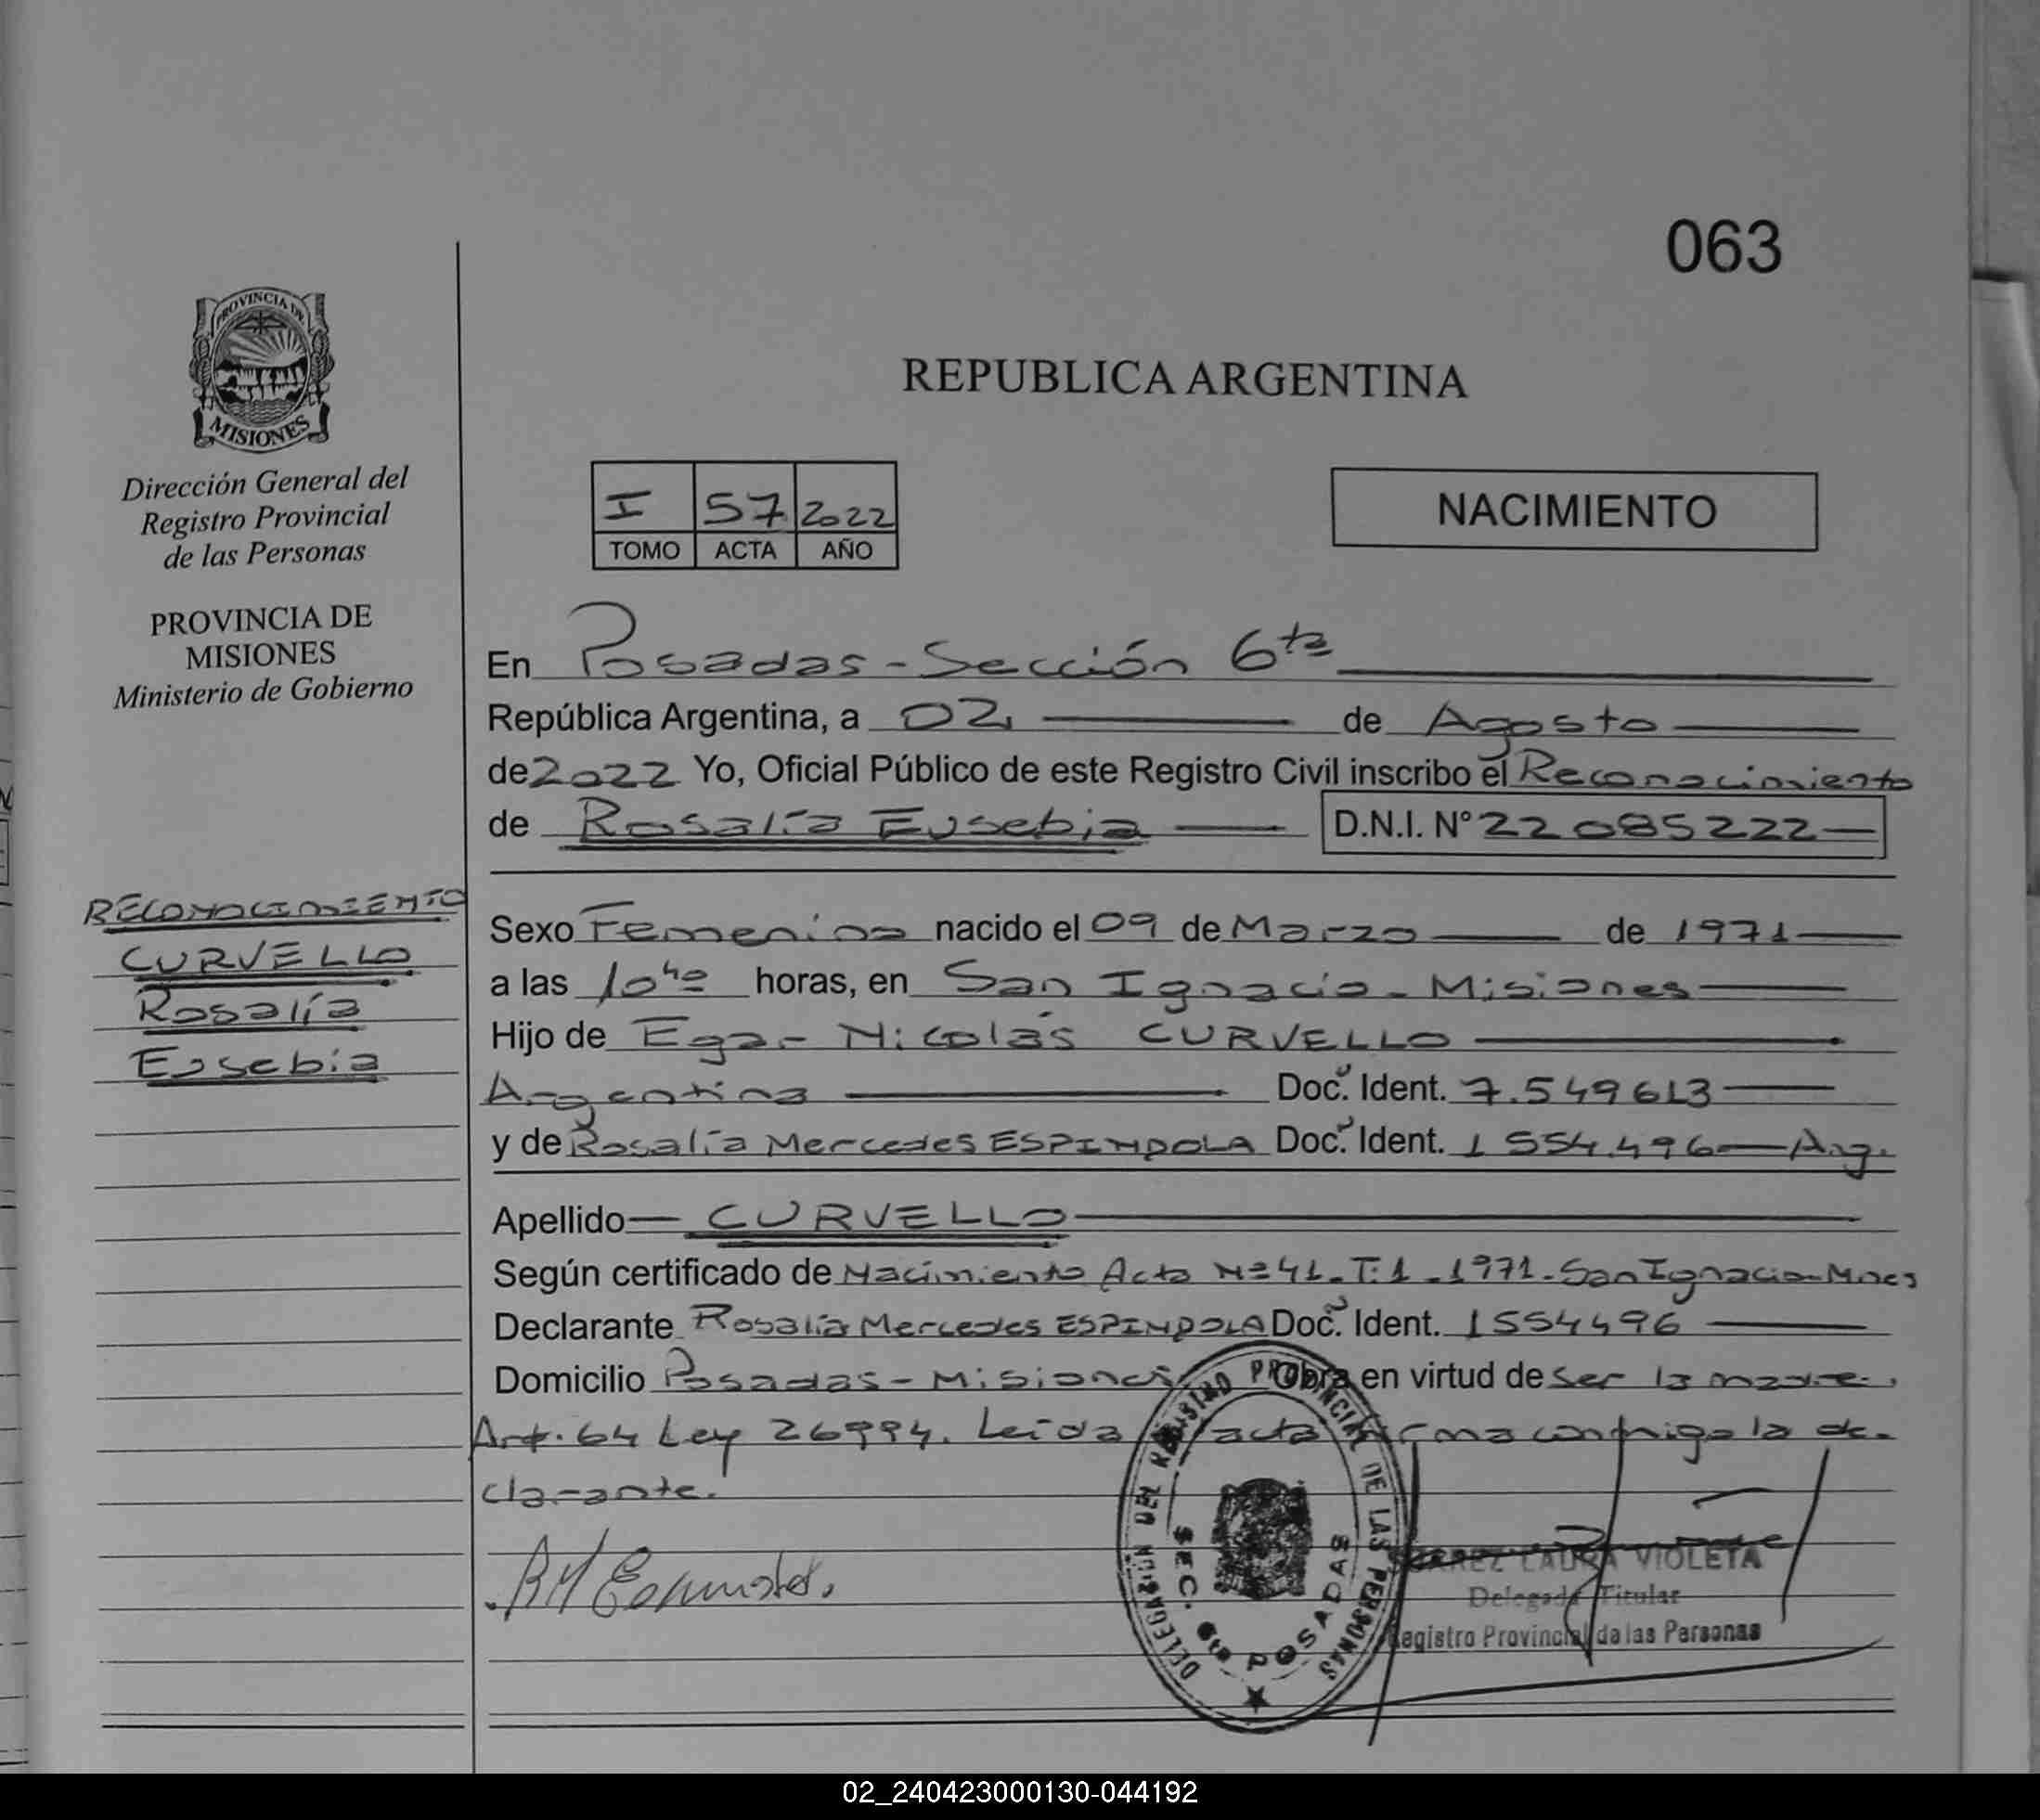 063
PROVINCIA DE
MISIONES
Dirección General del
Registro Provincial
de las Personas
PROVINCIA DE
MISIONES
Ministerio de Gobierno
RECONOCIMIENTO
CURVELLO
Rosalía
Eusebia
REPUBLICA ARGENTINA
I 57 2022
TOMO ACTA AÑO
NACIMIENTO
En Posadas - Sección 6ta
República Argentina, a 02 de Agosto
de 2022 Yo, Oficial Público de este Registro Civil inscribo el Reconocimiento
de Rosalía Eusebia D.N.I. N° 22085222
Sexo Femenino nacido el 09 de Marzo de 1971
a las 10 horas, en San Ignacio - Misiones
Hijo de Nicolás CURVELLO
Argentina Doc. Ident. 7.549613
y de Rosalía Mercedes ESPINDOLA Doc. Ident. 1554.496 - Arg.
Apellido CURVELLO
Según certificado de Nacimiento Acta Nº 41. T: 1 . 1971. San Ignacio - Mnes
Declarante Rosalía Mercedes ESPINDOLA Doc. Ident. 1554496
Domicilio Posadas - Misiones Obra en virtud de ser la madre.
Art. 64 Ley 26994. Leida acta firma conmigo la de-
clarante.
DELEGACION DEL REGISTRO PROVINCIAL DE LAS PERSONAS
SEC. 6ta POSADAS
LAURA VIOLETA
Delegada Titular
Registro Provincial de las Personas
02_240423000130-044192